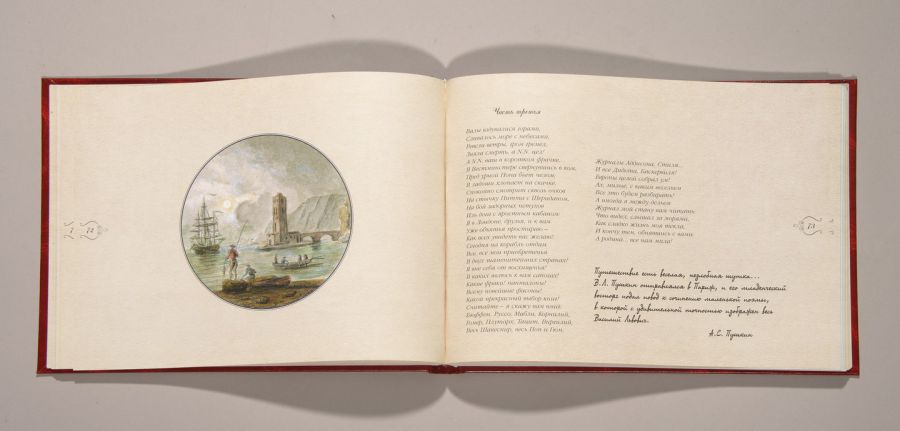 Часть третья
Валы вздувалися горами,
Сливалось море с небесами,
Ревели ветры, гром гремел,
Зияла смерть, а N.N. цел!
А N.N. наш в коротком фрачке,
В Вестминстере свернувшись в ком,
Пред урной Попа бьет челом;
В ладоши хлопает на скачке,
Спокойно смотрит сквозь очков
На стычку Питта с Шериданом,
На бой задорных петухов
Иль дога с яростным кабаном;
Я в Лондоне, друзья, и к вам
Уже объятья простираю –
Как всех увидеть вас желаю!
Сегодня на корабль отдам
Все, все мои приобретенья
В двух знаменитейших странах!
Я вне себя от восхищенья!
В каких явлюсь к вам сапогах!
Какие фраки! панталоны!
Всему новейшие фасоны!
Какой прекрасный выбор книг!
Считайте – я скажу вам вмиг:
Бюффон, Руссо, Мабли, Корнилий,
Гомер, Плутарх, Тацит, Виргилий,
Весь Шакеспир, весь Поп и Гюм,
Журналы Адисона, Стиля...
И все Дидота, Баскервиля!
Европы целой собрал ум!
Ах, милые, с каким весельем
Все это будем разбирать!
А иногда и между дельем
Журнал мой стану вам читать:
Что видел, слышал за морями,
Как сладко жизнь моя текла,
И кончу тем, обнявшись с вами:
А родина... все нам мила!
Путешествие есть веселая, незлобная шутка...
В.Л. Пушкин отправлялся в Париж, и его младенческий
восторг подал повод к сочинению маленькой поэмы,
в которой с удивительной точностью изображен весь
Василий Львович.
А.С. Пушкин
72
73